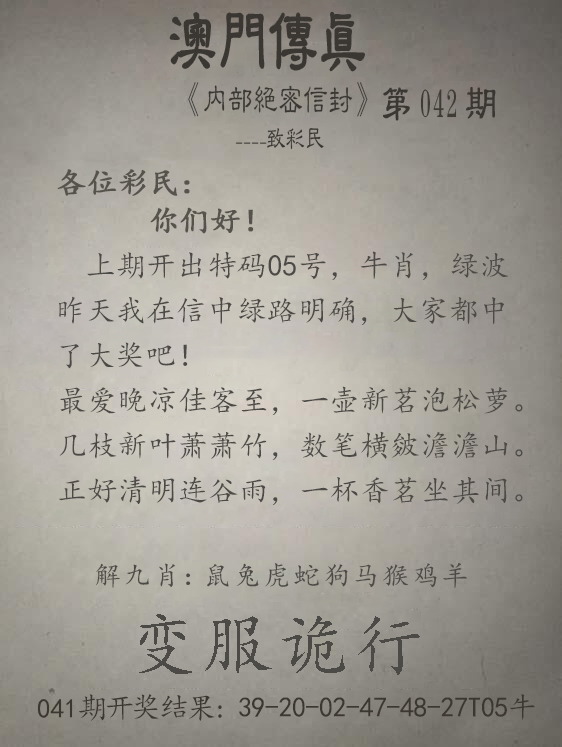 澳門傳真
《内部絕密信封》第042期
----致彩民
各位彩民：
你们好！
上期开出特码05号，牛肖，绿波
昨天我在信中绿路明确，大家都中
了大奖吧！
最爱晚凉佳客至，一壶新茗泡松萝。
几枝新叶萧萧竹，数笔横皴澹澹山。
正好清明连谷雨，一杯香茗坐其间。
解九肖：鼠兔虎蛇狗马猴鸡羊
变服诡行
041期开奖结果：39-20-02-47-48-27T05牛